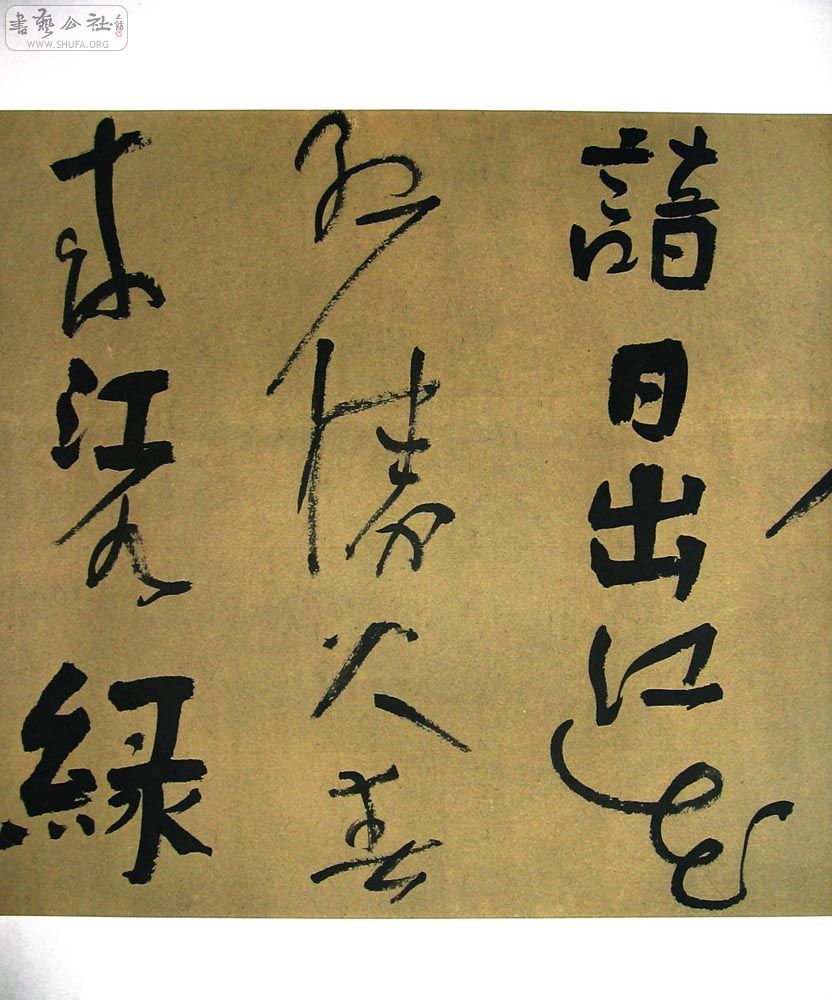 書藝公社
WWW.SHUFA.ORG
諳日出江花
紅勝火春
來江水緑